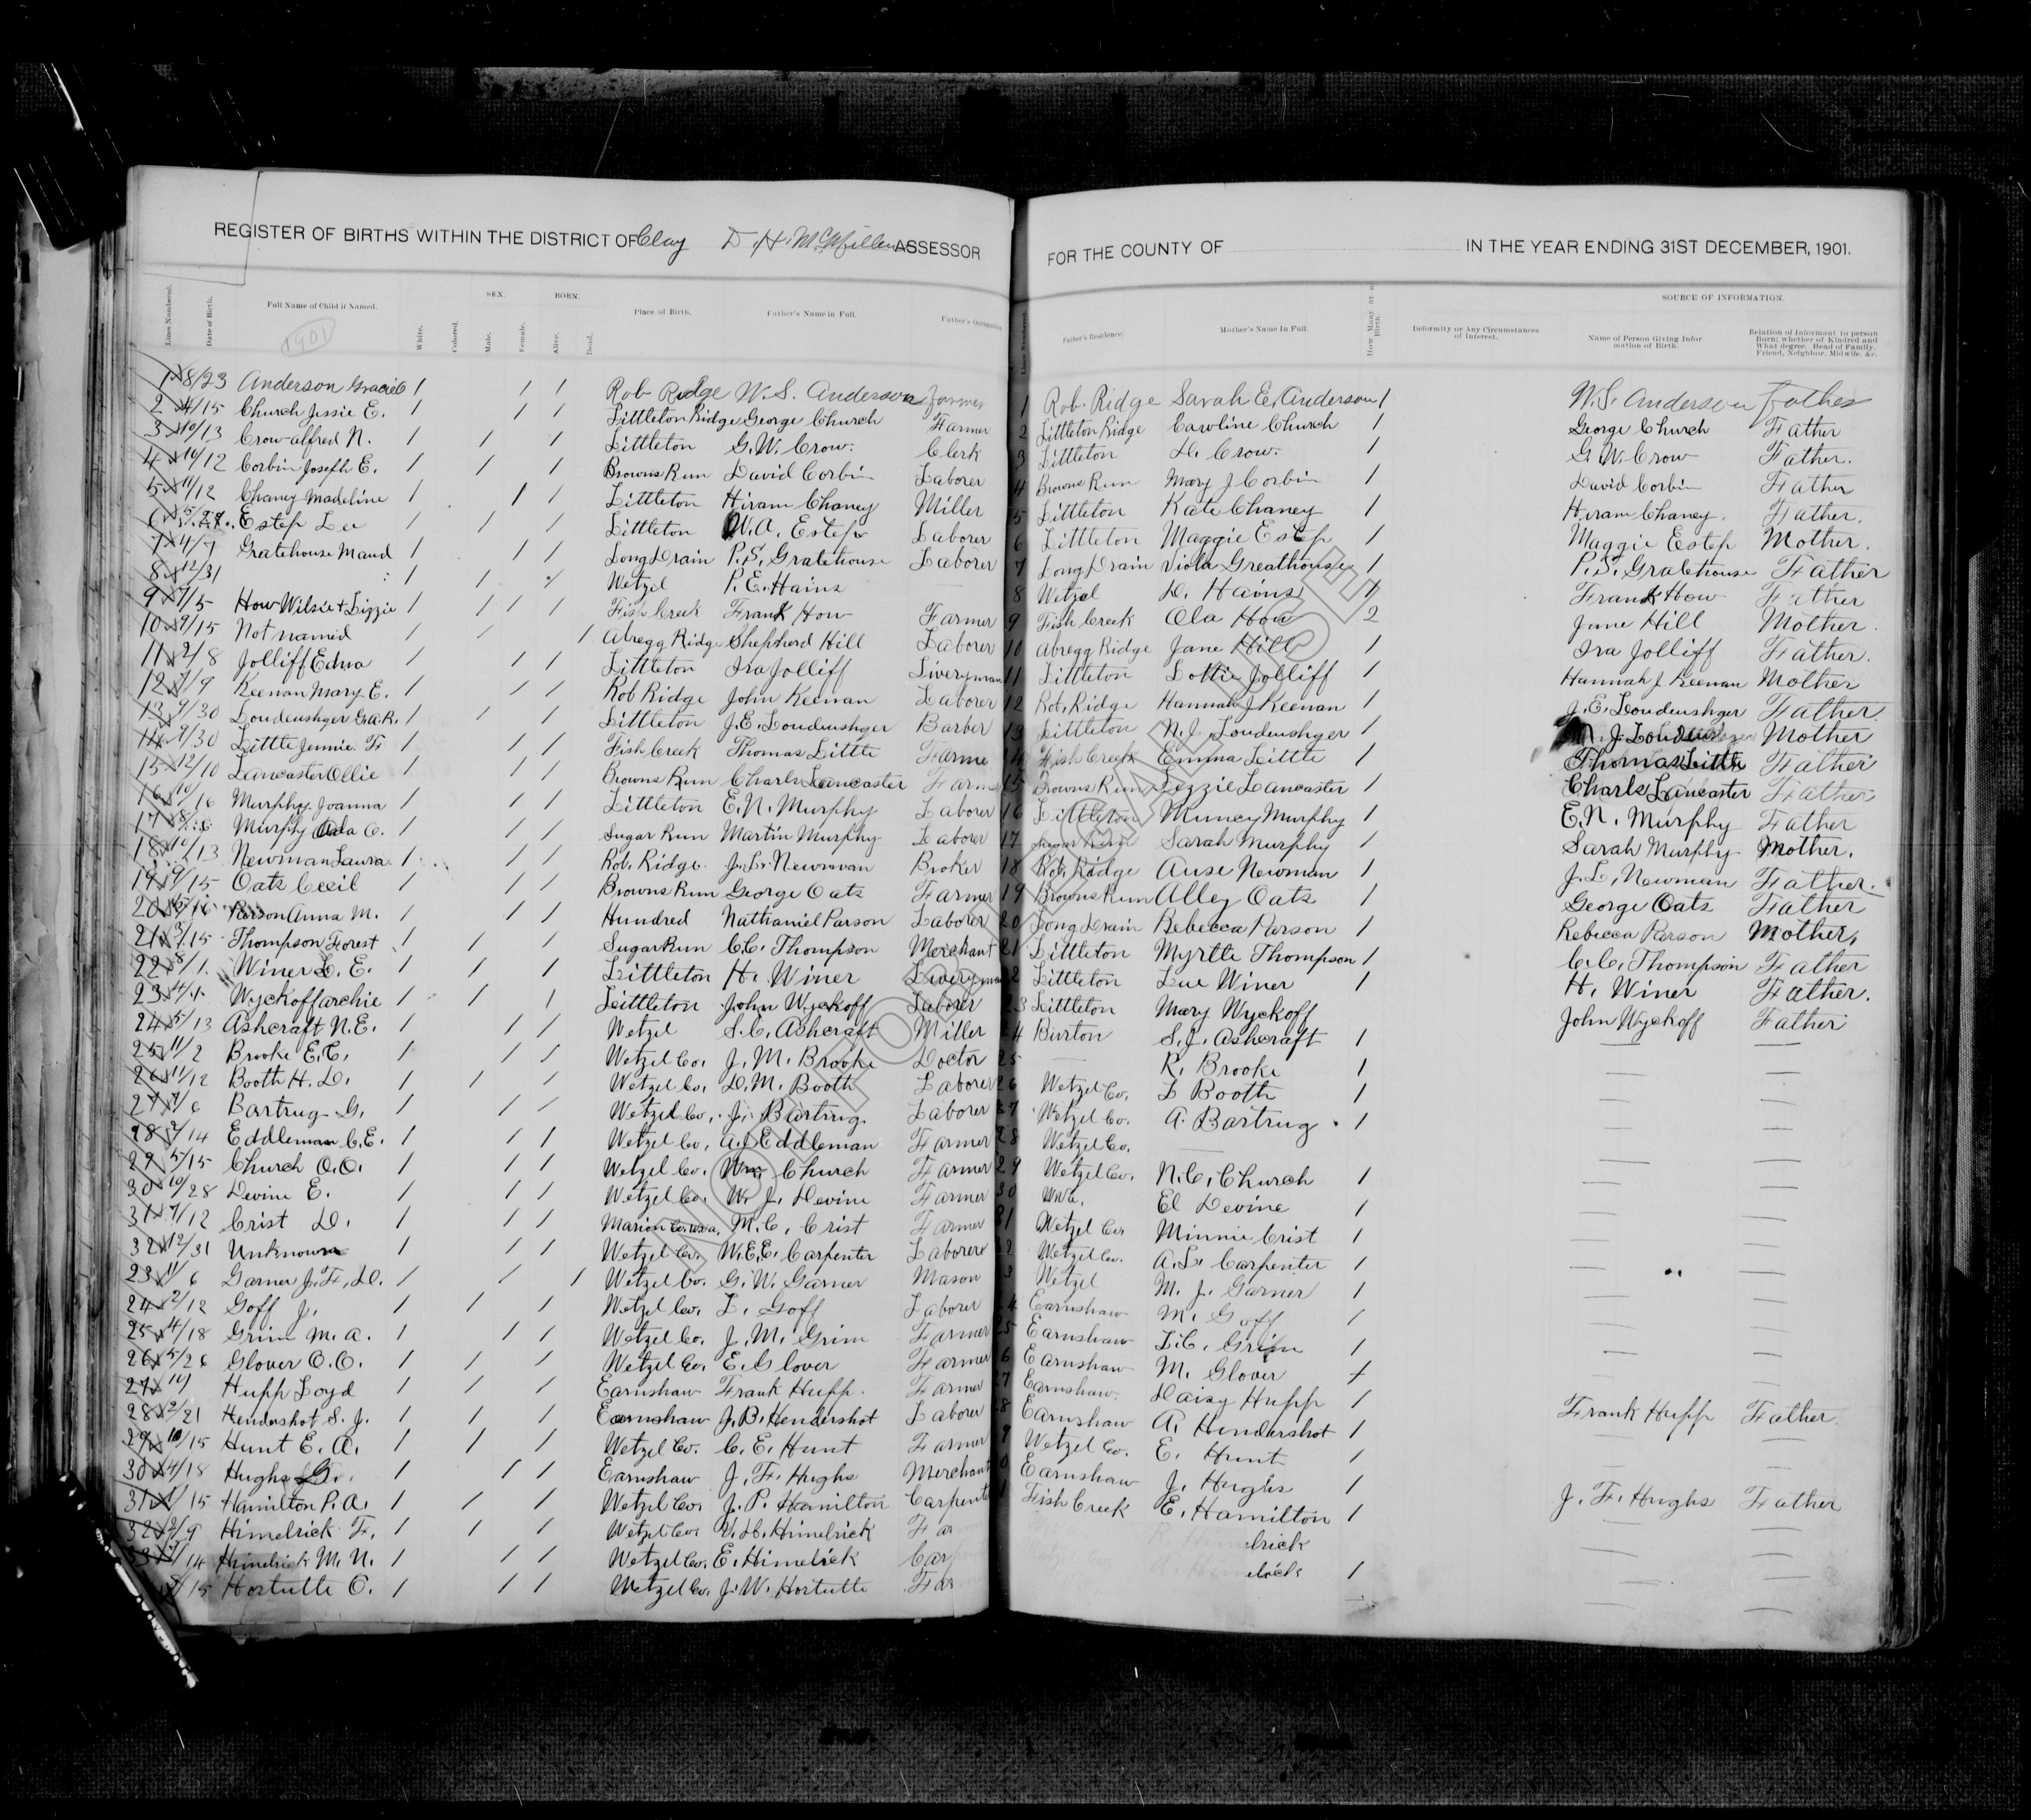 REGISTER OF BIRTHS WITHIN THE DISTRICT OF Clay D. H. McMillen ASSESSOR FOR THE COUNTY OF IN THE YEAR ENDING 31ST DECEMBER, 1901.
SEX. BORN. SOURCE OF INFORMATION.
Lines Numbered. Date of Birth. Full Name of Child if Named. White. Colored. Male. Female. Alive. Dead. Place of Birth. Father's Name in Full. Father's Occupation Lines Numbered. Father's Residence. Mother's Name In Full. How Many at a Birth. Deformity or Any Circumstances of Interest. Name of Person Giving Information of Birth. Relation of Informant to person Born; whether of Kindred and What degree, Head of Family, Friend, Neighbor, Midwife, &c.
1901
1 8/23 Anderson Gracie 1 / / Rob Ridge W. S. Anderson Farmer 1 Rob. Ridge Sarah E. Anderson 1 W. S. Anderson Father
2 4/15 Church Jessie E. 1 / / Littleton Ridge George Church Farmer 2 Littleton Ridge Caroline Church 1 George Church Father
3 10/13 Crow alfred N. 1 / / Littleton G. W. Crow. Clerk 3 Littleton D. Crow. 1 G. W. Crow Father.
4 10/12 Corbin Joseph E. 1 / / Browns Run David Corbin Laborer 4 Browns Run Mary J Corbin 1 David Corbin Father
5 11/12 Chaney Madeline 1 / / Littleton Hiram Chaney Miller 5 Littleton Kate Chaney 1 Hiram Chaney. Father.
6 Estep Lee 1 / / Littleton W. A. Estep Laborer 6 Littleton Maggie Estep 1 Maggie Estep Mother.
7 4/7 Gratehouse Maud 1 / / Long Drain P. S. Gratehouse Laborer 7 Long Drain Viola Greathouse 1 P. S. Gratehouse Father
8 12/31 1 / / Wetzel P. E. Hains 8 Wetzel D. Hains 1
9 7/5 How Wilsie & Lizzie 1 / / / Fish Creek Frank How Farmer 9 Fish Creek Ola How 2 Frank How Father
10 9/15 Not named 1 / 1 Abregg Ridge Shepherd Hill Laborer 10 Abregg Ridge Jane Hill 1 Jane Hill Mother.
11 2/8 Jolliff Edna 1 / / Littleton Ira Jolliff Liveryman 11 Littleton Lottie Jolliff 1 Ira Jolliff Father.
12 7/9 Keenan Mary E. 1 / / Rob Ridge John Keenan Laborer 12 Rob. Ridge Hannah J Keenan 1 Hannah J Keenan Mother
13 9/30 Loudenshger G.A.R. 1 / / Littleton J. E. Loudenshger Barber 13 Littleton N. J. Loudenshger 1 J. E. Loudenshger Father
14 9/30 Little Jennie F 1 / / Fish Creek Thomas Little Farme 14 Fish Creek Emma Little 1 Mother
15 12/10 Lancaster Ollie 1 / / Browns Run Charls Lancaster Farm 15 Browns Run Lizzie Lancaster 1 Thomas Little Father
16 10/16 Murphy Joanna 1 / / Littleton E. N. Murphy Laborer 16 Littleton Muncy Murphy 1 Charls Lancaster Father
17 Murphy Ada C. 1 / / Sugar Run Martin Murphy Laborer 17 Sugar Run Sarah Murphy 1 E. N. Murphy Father
18 10/13 Newman Laura 1 / / Rob. Ridge J. L. Newman Broker 18 Rob. Ridge Ause Newman 1 Sarah Murphy Mother.
19 9/15 Oats Cecil 1 / / Browns Run George Oats Farmer 19 Browns Run Alley Oats 1 J. L. Newman Father.
20 Parson Anna M. 1 / / Hundred Nathaniel Parson Laborer 20 Long Drain Rebecca Parson 1 George Oats Father
21 3/15 Thompson Forest 1 / / Sugar Run C. C. Thompson Merchant 21 Littleton Myrtle Thompson 1 Rebecca Parson Mother,
22 8/1 Winer L. E. 1 / / Littleton H. Winer Liveryman 22 Littleton Lue Winer 1 C. C. Thompson Father
23 4/1 Wyckoff archie 1 / / Littleton John Wyckoff Laborer 23 Littleton Mary Wyckoff H. Winer Father.
24 5/13 Ashcraft N. E. 1 / / Wetzel S. C. Ashcraft Miller 24 Burton S. J. Ashcraft 1 John Wyckoff Father
25 11/2 Brooke E. C. 1 / / Wetzel Co. J. M. Brooke Doctor 25 R. Brooke 1
26 11/12 Booth H. D. 1 / / Wetzel Co. D. M. Booth Laborer 26 Wetzel Co. L Booth 1
27 7/6 Bartrug G. 1 / / Wetzel Co. J. Bartrug. Laborer 27 Wetzel Co. A. Bartrug 1
28 2/14 Eddleman C. E. 1 / / Wetzel Co. A. J. Eddleman Farmer 28 Wetzel Co.
29 5/15 Church O. O. 1 / / Wetzel Co. Wm. Church Farmer 29 Wetzel Co. N. C. Church 1
30 10/28 Devine E. 1 / / Wetzel Co. W. J. Devine Farmer 30 El Devine 1
31 7/12 Crist D. 1 / / Marion Co. W.Va. M. C. Crist Farmer 31 Wetzel Co. Minnie Crist 1
32 12/31 Unknown 1 / / Wetzel Co. W. E. E. Carpenter Laborer 32 Wetzel Co. A. L. Carpenter 1
23 11/6 Garner J. F. D. 1 / 1 Wetzel Co. G. W. Garner Mason 3 Wetzel M. J. Garner 1
24 2/12 Goff J. 1 / / Wetzel Co. L. Goff Laborer 4 Earnshaw M. Goff 1
25 4/18 Grim M. A. 1 / / Wetzel Co. J. M. Grim Farmer 5 Earnshaw L. C. Grim 1
26 5/26 Glover O. O. 1 / / Wetzel Co. E. Glover Farmer 6 Earnshaw M. Glover 1
27 Hupp Loyd 1 / / Earnshaw Frank Hupp. Farmer 7 Earnshaw. Daisy Hupp 1 Frank Hupp Father
28 2/21 Hendershot S. J. 1 / / Earnshaw J. B. Hendershot Laborer 8 Earnshaw A. Hendershot 1
29 10/15 Hunt E. A. 1 / / Wetzel Co. C. E. Hunt Farmer 9 Wetzel Co. E. Hunt 1
30 4/18 Hughs G. 1 / / Earnshaw J. F. Hughs Merchant 0 Earnshaw J. Hughs 1 J. F. Hughs Father
31 15 Hamilton P. A. 1 / / Wetzel Co. J. P. Hamilton Carpent 1 Fish Creek E. Hamilton 1
32 2/9 Himelrick F. 1 / / Wetzel Co. Himelrick Far
33 14 Himelrick M. N. 1 / / Wetzel Co. E. Himelrick Car 1
15 Hostutle O. 1 / / Wetzel Co. J. W. Hostutle Far
NOT FOR LEGAL USE